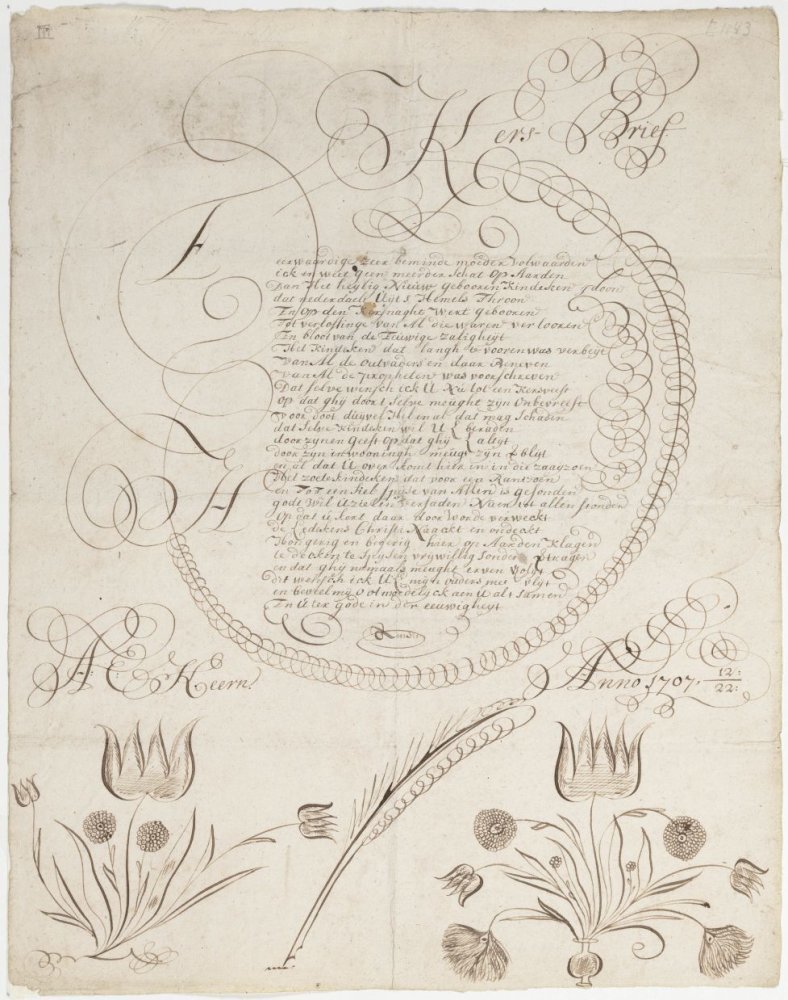 Kers-Brief
eerwaardige zeer beminde moeder volwaarden
ick en weet geen meerder schat op Aarden
Dan Het heylig Nieuw gebooren Kindeken
dat nederdaelt Uijt s Hemels Throon
En op den Kersnaght Wert gebooren
Tot verlossinge van Al die waren verlooren
En bloot van de Eeuwige Zaligheyt
Het kindeken dat langh te vooren was verbeyt
Van Al de outvaders en daar Beneven
van Al de propheten was voorschreven
Dat selve wensch ick U Nu tot een Kersgeest
op dat ghij door t selve mought zijn Onbevreest
voor doot duijvel Hel en al dat mag schaden
dat selve Kindeken wil U beraden
door zijnen Geest op dat ghij altijt
door zijn inwooningh meught zijn blijt
en al dat U over komt hier in in die zaayzoen
Het zoete kindeken dat voor een Rantzoen
en Tot een siel spijse van Allen is gesonden
godt Wil U zielen versaden Nu en tot allen stonden
Op dat U Hert daar door Worde verweckt
de Ledekens Christi Naackt en
Hongerig en hier op Aarden Klagen
te decken te spijsen vrijwillig Sonder
en dat ghij namaals meught erven
dit wensch ick U mijn ouders mee
en beveel mij ootmoedelyck aen U al t samen
En U ter Gode in der eeuwigheyt
A: E: Heern:
Anno 1707. 12:
22: